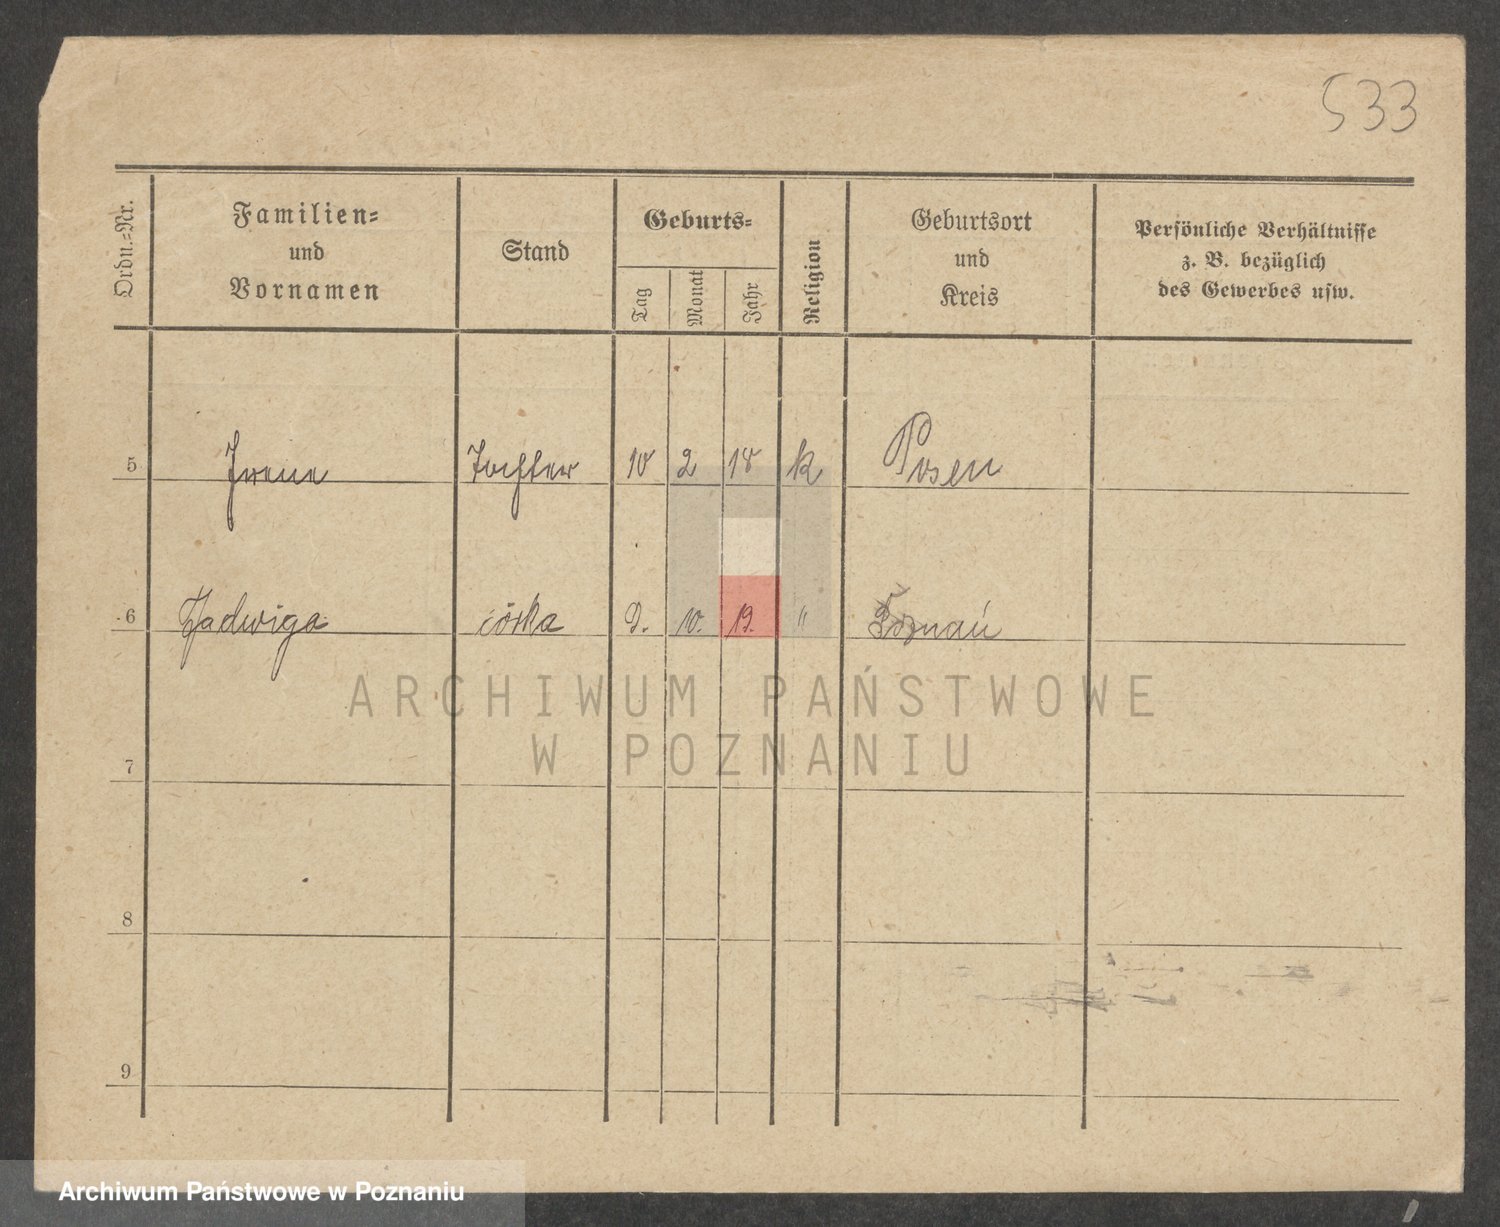 533
Ordn.-Nr.
Familien-
und
Vornamen
Stand
Geburts-
Tag
Monat
Jahr
Religion
Geburtsort
und
Kreis
Persönliche Verhältnisse
z. B. bezüglich
des Gewerbes usw.
5 Irene Tochter 10 2 18 k Posen
6 Jadwiga córka 9. 10. 19. " Poznań
ARCHIWUM PAŃSTWOWE
W POZNANIU
7
8
9
Archiwum Państwowe w Poznaniu